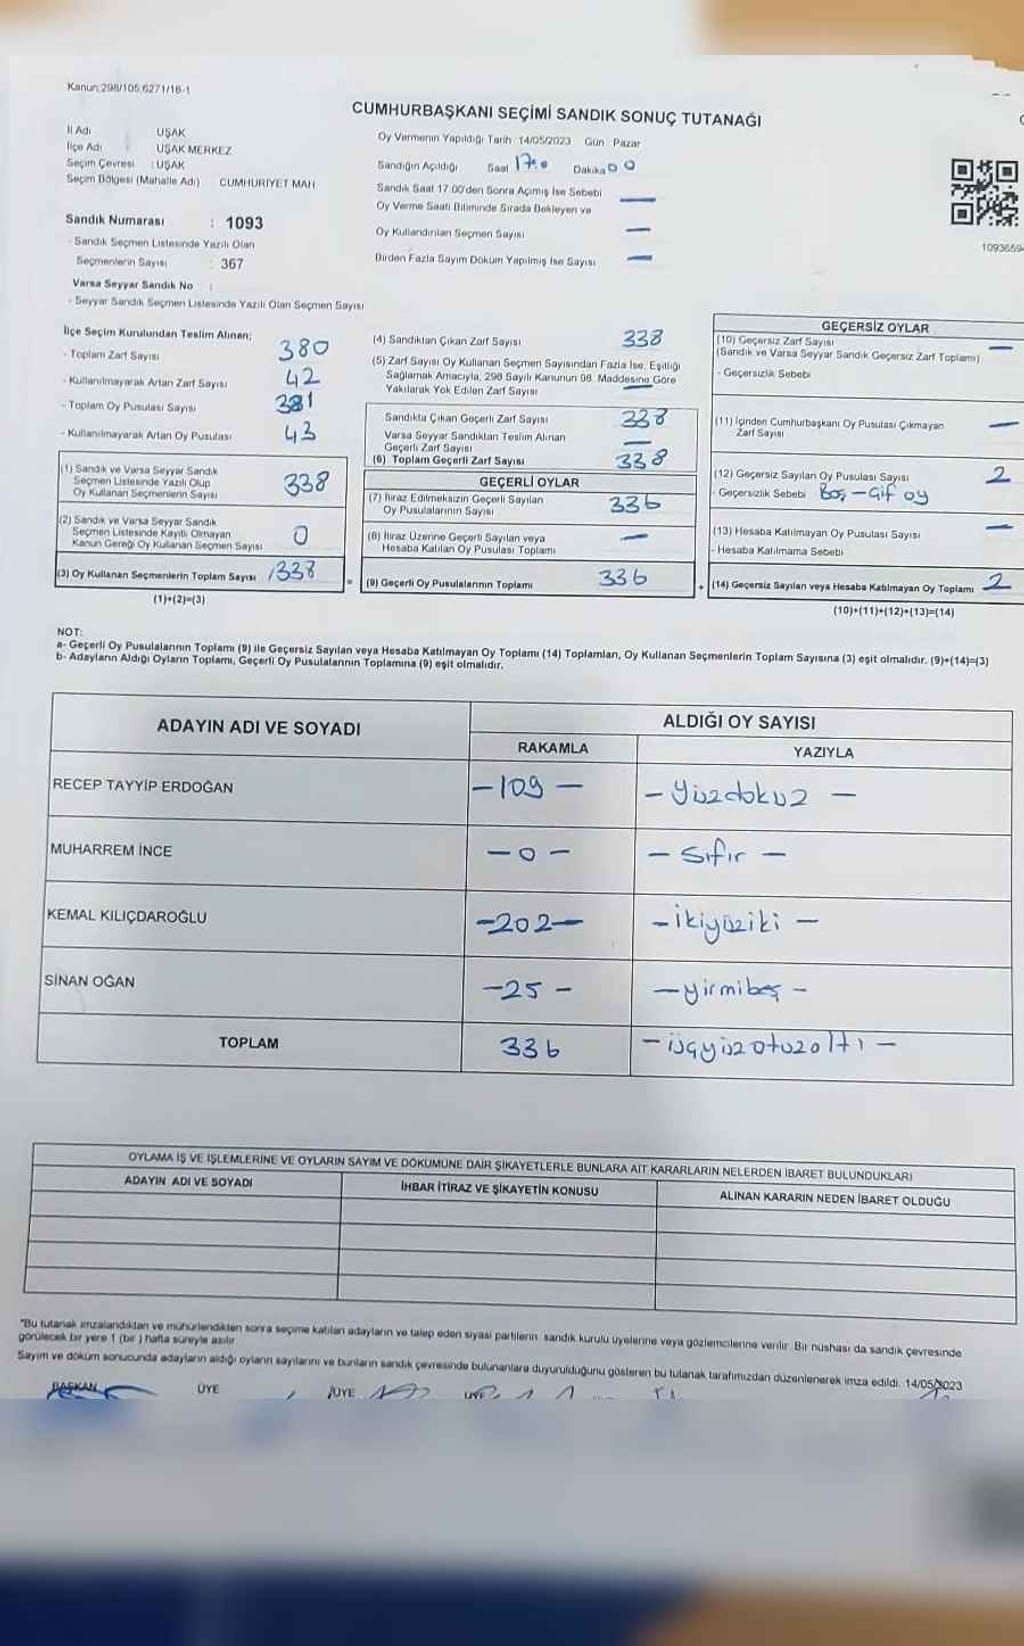 Kanun:298/105,6271/16-1
CUMHURBAŞKANI SEÇİMİ SANDIK SONUÇ TUTANAĞI
İl Adı UŞAK
İlçe Adı UŞAK MERKEZ
Seçim Çevresi : UŞAK
Seçim Bölgesi (Mahalle Adı) CUMHURİYET MAH
Sandık Numarası : 1093
- Sandık Seçmen Listesinde Yazılı Olan
Seçmenlerin Sayısı : 367
Varsa Seyyar Sandık No :
- Seyyar Sandık Seçmen Listesinde Yazılı Olan Seçmen Sayısı
Oy Vermenin Yapıldığı Tarih : 14/05/2023 Gün : Pazar
Sandığın Açıldığı Saat Dakika 00
Sandık Saat 17.00'den Sonra Açımış İse Sebebi —
Oy Verme Saati Bitiminde Sırada Bekleyen ve
Oy Kullandırılan Seçmen Sayısı —
Birden Fazla Sayım Döküm Yapılmış İse Sayısı —
1093659
İlçe Seçim Kurulundan Teslim Alınan;
- Toplam Zarf Sayısı 380
- Kullanılmayarak Artan Zarf Sayısı 42
- Toplam Oy Pusulası Sayısı 381
- Kullanılmayarak Artan Oy Pusulası 43
(1) Sandık ve Varsa Seyyar Sandık
Seçmen Listesinde Yazılı Olup
Oy Kullanan Seçmenlerin Sayısı 338
(2) Sandık ve Varsa Seyyar Sandık
Seçmen Listesinde Kayıtlı Olmayan
Kanun Gereği Oy Kullanan Seçmen Sayısı 0
(3) Oy Kullanan Seçmenlerin Toplam Sayısı 338
(1)+(2)=(3)
(4) Sandıktan Çıkan Zarf Sayısı 338
(5) Zarf Sayısı Oy Kullanan Seçmen Sayısından Fazla İse, Eşitliği
Sağlamak Amacıyla, 298 Sayılı Kanunun 98. Maddesine Göre
Yakılarak Yok Edilen Zarf Sayısı —
Sandıkta Çıkan Geçerli Zarf Sayısı 338
Varsa Seyyar Sandıktan Teslim Alınan
Geçerli Zarf Sayısı —
(6) Toplam Geçerli Zarf Sayısı 338
GEÇERLİ OYLAR
(7) İtiraz Edilmeksizin Geçerli Sayılan
Oy Pusulalarının Sayısı 336
(8) İtiraz Üzerine Geçerli Sayılan veya
Hesaba Katılan Oy Pusulası Toplamı —
(9) Geçerli Oy Pusulalarının Toplamı 336
GEÇERSİZ OYLAR
(10) Geçersiz Zarf Sayısı —
(Sandık ve Varsa Seyyar Sandık Geçersiz Zarf Toplamı)
- Geçersizlik Sebebi
(11) İçinden Cumhurbaşkanı Oy Pusulası Çıkmayan
Zarf Sayısı —
(12) Geçersiz Sayılan Oy Pusulası Sayısı 2
- Geçersizlik Sebebi Boş-Çif oy
(13) Hesaba Katılmayan Oy Pusulası Sayısı —
- Hesaba Katılmama Sebebi
(14) Geçersiz Sayılan veya Hesaba Katılmayan Oy Toplamı 2
(10)+(11)+(12)+(13)=(14)
NOT:
a- Geçerli Oy Pusulalarının Toplamı (9) ile Geçersiz Sayılan veya Hesaba Katılmayan Oy Toplamı (14) Toplamları, Oy Kullanan Seçmenlerin Toplam Sayısına (3) eşit olmalıdır. (9)+(14)=(3)
b- Adayların Aldığı Oyların Toplamı, Geçerli Oy Pusulalarının Toplamına (9) eşit olmalıdır.
ADAYIN ADI VE SOYADI ALDIĞI OY SAYISI
RAKAMLA YAZIYLA
RECEP TAYYİP ERDOĞAN -109- -yüzdokuz-
MUHARREM İNCE -0- -sıfır-
KEMAL KILIÇDAROĞLU -202- -ikiyüziki-
SİNAN OĞAN -25- -yirmibeş-
TOPLAM 336 -üçyüzotuzaltı-
OYLAMA İŞ VE İŞLEMLERİNE VE OYLARIN SAYIM VE DÖKÜMÜNE DAİR ŞİKAYETLERLE BUNLARA AİT KARARLARIN NELERDEN İBARET BULUNDUKLARI
ADAYIN ADI VE SOYADI İHBAR İTİRAZ VE ŞİKAYETİN KONUSU ALINAN KARARIN NEDEN İBARET OLDUĞU
"Bu tutanak imzalandıktan ve mühürlendikten sonra seçime katılan adayların ve talep eden siyasi partilerin sandık kurulu üyelerine veya gözlemcilerine verilir. Bir nüshası da sandık çevresinde
görülecek bir yere 1 (bir ) hafta süreyle asılır.
Sayım ve döküm sonucunda adayların aldığı oyların sayılarını ve bunların sandık çevresinde bulunanlara duyurulduğunu gösteren bu tutanak tarafımızdan düzenlenerek imza edildi. 14/05/2023
BAŞKAN ÜYE ÜYE ÜYE